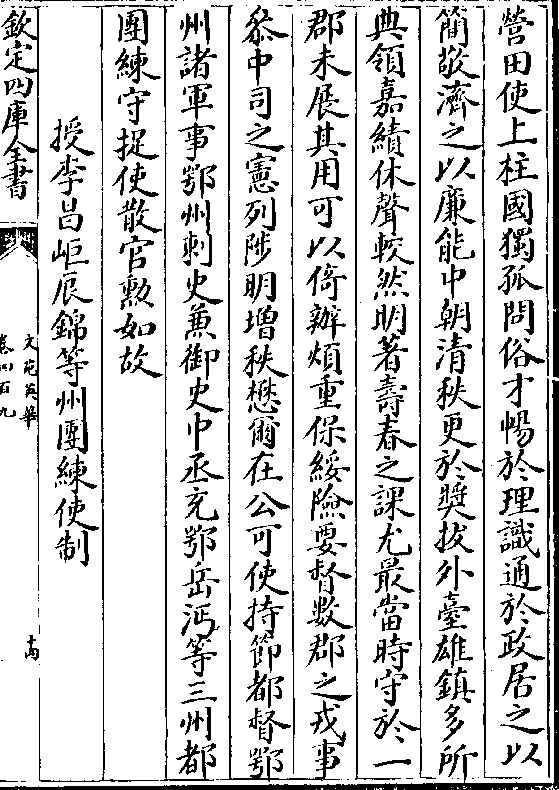 營田使上柱國獨孤問俗才暢於理識通於政居之以
簡敬濟之以廉能中朝清秩更於奬拔外臺雄鎮多所
典領嘉績休聲較然明著壽春之課尤最當時守於一
郡未展其用可以倚辦煩重保綏險要督數郡之戎事
叅中司之憲列陟明增秩懋爾在公可使持節都督鄂
州諸軍事鄂州刺史兼御史中丞充鄂岳沔等三州都
團練守捉使散官勲如故
授李昌岠辰錦等州團練使制
欽定四庫全書
文苑英華
卷四百九
十四